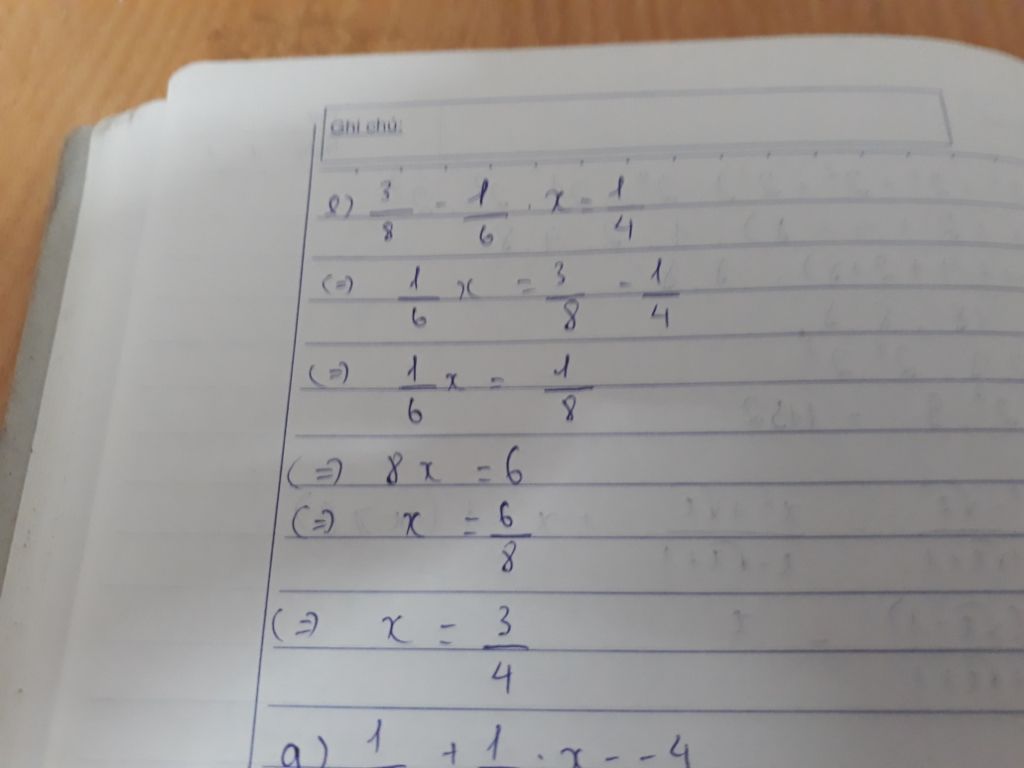 Ghi chú:
e) 3/8 - 1/6 . x = 1/4
(=) 1/6 x = 3/8 - 1/4
(=) 1/6 x = 1/8
(=) 8x = 6
(=) x = 6/8
(=) x = 3/4
g) 1 + 1 . x - - 4